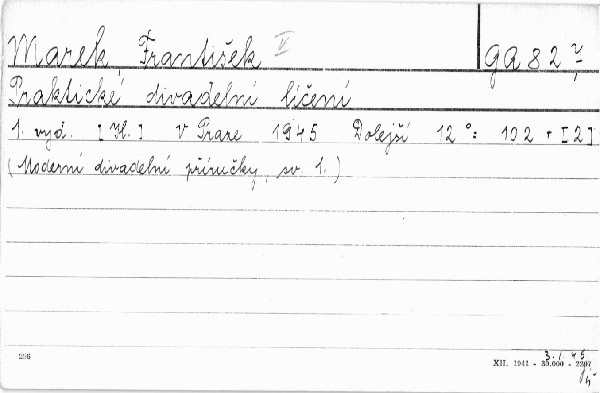 Marek František V GA 82
Praktické divadelní líčení
1. vyd. [Il.] V Praze 1945 Dolejší 12°: 102 + [2]
(Moderní divadelní příručky, sv. 1.)
286 XII. 1941 - 30.000 - 2207
3. 1. 45